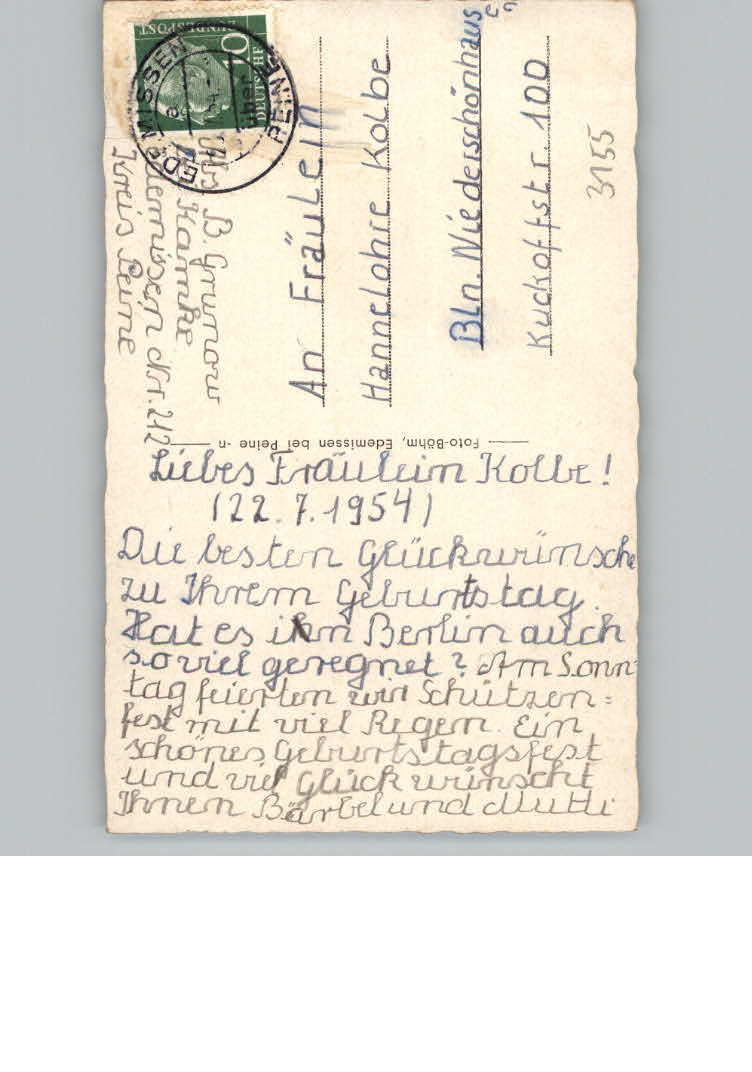 DEUTSCHE
BUNDESPOST
10
EDEMISSEN
über
PEINE
Abs B. Grunow
Kamke
Edemissen Nr. 212
Kreis Peine
An Fräulein
Hannelohre Kolbe
Bln. Niederschönhausen
Kuckoffstr. 100
3155
Foto-Böhm, Edemissen bei Peine -n-
Liebes Fräulein Kolbe!
(22.7.1954)
Die besten Glückwünsche
zu Ihrem Geburtstag.
Hat es in Berlin auch
so viel geregnet? Am Sonn-
tag feierten wir Schützen=
fest mit viel Regen. Ein
schönes Geburtstagsfest
und viel Glück wünscht
Ihnen Bärbel und Mutti